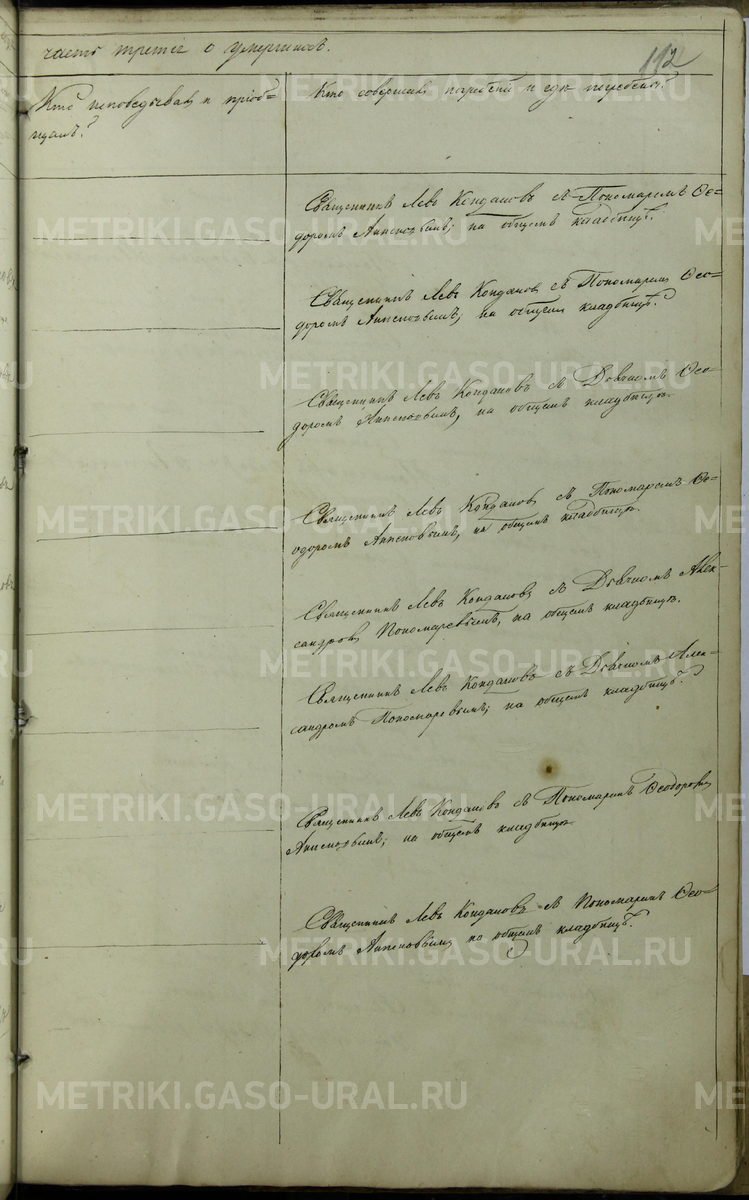 часть третія о умершихъ.
112
Кто исповѣдывалъ и пріоб-
щалъ?
Кто совершалъ погребеніе и гдѣ погребены?
Священникъ Левъ Кондаковъ съ Пономаремъ Ѳе-
доромъ на общемъ кладбищѣ.
Священникъ Левъ Кондаковъ съ Пономаремъ Ѳео-
доромъ на общемъ кладбищѣ.
Священникъ Левъ Кондаковъ съ Дьячкомъ Ѳео-
доромъ на общемъ кладбищѣ.
Священникъ Левъ Кондаковъ съ Пономаремъ Ѳе-
одоромъ на общемъ кладбищѣ.
Священникъ Левъ Кондаковъ съ Дьячкомъ Алек-
сандромъ Пономаревымъ, на общемъ кладбищѣ.
Священникъ Левъ Кондаковъ съ Дьячкомъ Алек-
сандромъ Пономаревымъ; на общемъ кладбищѣ.
Священникъ Левъ Кондаковъ съ Пономаремъ Ѳеодоромъ
на общемъ кладбищѣ
Священникъ Левъ Кондаковъ съ Пономаремъ Ѳео-
доромъ на общемъ кладбищѣ.
METRIKI.GASO-URAL.RU